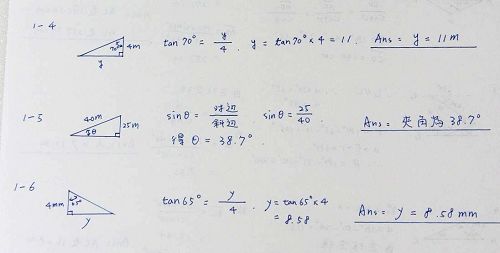 1-4
70° 4m
y
tan70° = y/4 . y = tan70° × 4 = 11 . Ans = y = 11 m
1-5
40m 25m
θ
sinθ = 对边/斜边 sinθ = 25/40 .
得 θ = 38.7° .
Ans = 夾角為 38.7°
1-6
4mm 65°
y
tan65° = y/4 . y = tan65° × 4
= 8.58
Ans = y = 8.58 mm